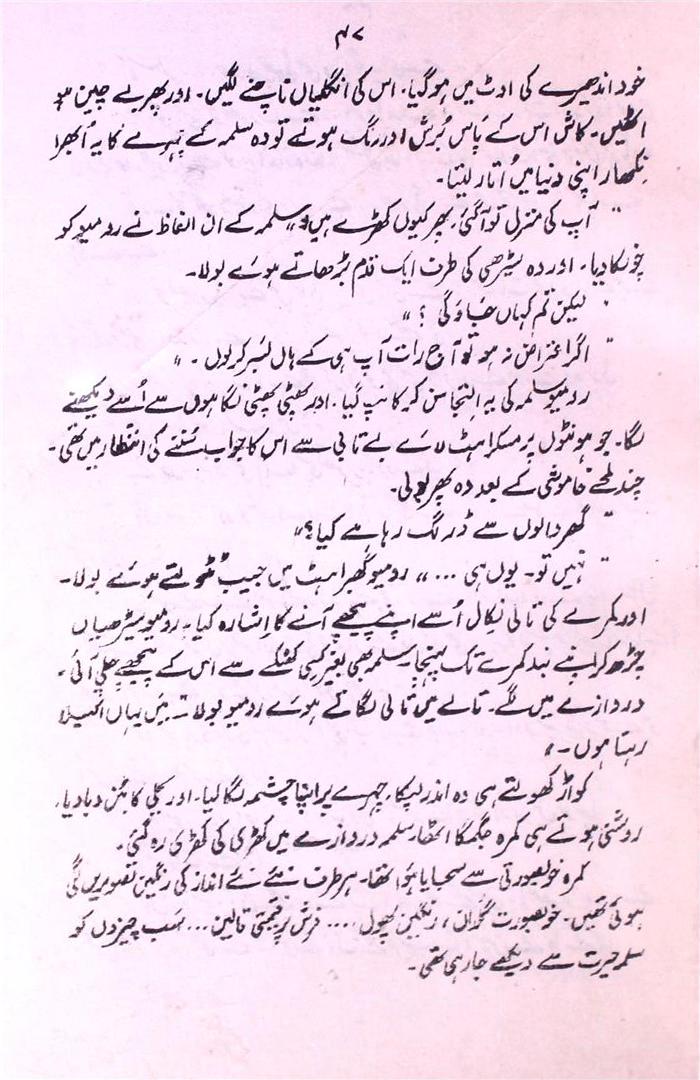 ۴۷
خود اندھیرے کی اوٹ میں ہوگیا۔ اس کی انگلیاں ناچنے لگیں۔ اور پھر بے چین ہو
اٹھیں۔ کاش اس کے پاس بُرش اور رنگ ہوتے تو وہ سلمہ کے چہرے کا یہ اُبھرا
نکھار اپنی دنیا میں اُتار لیتا۔
" آپ کی منزل تو آگئی، پھر کیوں کھڑے ہیں؟" سلمہ کے ان الفاظ نے رومیو کو
چونکا دیا۔ اور وہ سیڑھی کی طرف ایک قدم بڑھاتے ہوئے بولا۔
" لیکن تم کہاں جاؤ گی ؟ "
" اگر اعتراض نہ ہو تو آج رات آپ ہی کے ہاں بسر کر لوں ۔ "
رومیو سلمہ کی یہ التجا سن کر کانپ گیا۔ اور پھٹی پھٹی نگاہوں سے اُسے دیکھنے
لگا۔ جو ہونٹوں پر مسکراہٹ لائے بے تابی سے اس کا جواب سُننے کی انتظار میں تھی۔
چند لمحے خاموشی کے بعد وہ پھر بولی۔
" گھر والوں سے ڈر لگ رہا ہے کیا؟"
" نہیں تو۔ یوں ہی ... " رومیو گھبراہٹ میں جیب ٹٹولتے ہوئے بولا۔
اور کمرے کی تالی نکال اُسے اپنے پیچھے آنے کا اشارہ کیا۔ رومیو سیڑھیاں
چڑھ کر اپنے بند کمرے تک پہنچا۔ سلمہ بھی بغیر کسی کھٹکے سے اس کے پیچھے چلی آئی۔
دروازے میں لگے۔ تالے میں تالی لگاتے ہوئے رومیو بولا " میں یہاں اکیلا
رہتا ہوں۔ "
کواڑ کھولتے ہی وہ اندر لپکا، چہرے پر اپنا چشمہ لگا لیا۔ اور بجلی کا بٹن دبا دیا۔
روشنی ہوتے ہی کمرہ جگمگا اٹھا۔ سلمہ دروازے میں کھڑی کی کھڑی رہ گئی۔
کمرہ خوبصورتی سے سجایا ہؤا تھا۔ ہر طرف نئے نئے انداز کی رنگین تصویریں لگی
ہوئی تھیں۔ خوبصورت گلدان، رنگین پھول .... فرش پر قیمتی قالین ... سب چیزوں کو
سلمہ حیرت سے دیکھے جا رہی تھی۔